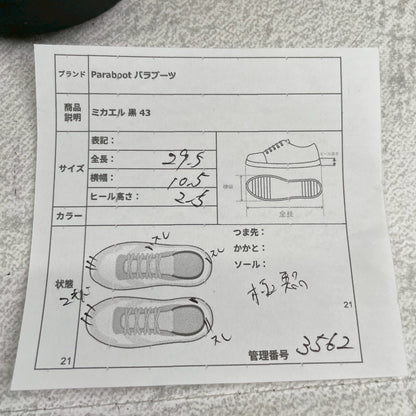 ブランド Parabootパラブーツ
商品説明 ミカエル 黒 43
サイズ
表記：
全長： 29.5
横幅： 10.5
ヒール高さ： 2.5
ヒール高さ
横幅
全長
カラー
状態
スレ
スレ
スレ
つま先：
かかと：
ソール：
21
21
管理番号 3562